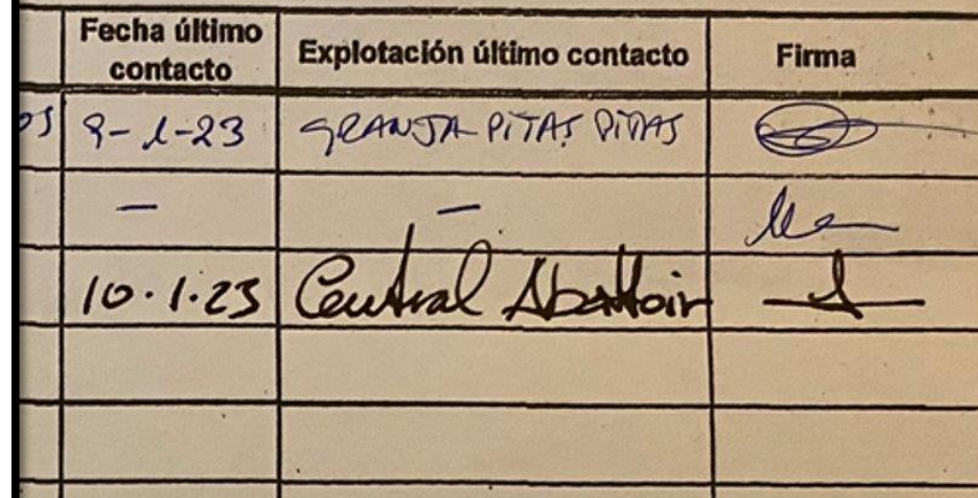 Fecha último contacto Explotación último contacto Firma
9-1-23 GRANJA PITAS PITAS
— —
10.1.23 Central Abattoir